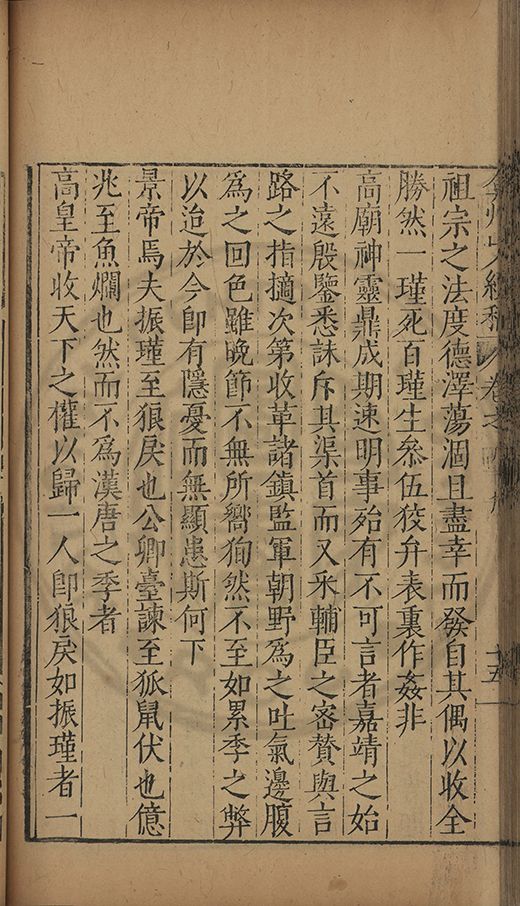 弇州史料 卷之 十五
祖宗之法度德澤蕩涸且盡幸而發自其偶以收全
勝然一瑾死百瑾生叅伍狡弁表裏作姦非
高廟神靈鼎成期速明事殆有不可言者嘉靖之始
不遠殷鑒悉誅斥其渠首而又采輔臣之密賛與言
路之指擿次第收革諸鎮監軍朝野爲之吐氣邊腹
爲之回色雖晚節不無所嚮狥然不至如累季之弊
以迨於今卽有隱憂而無顯患斯何下
景帝焉夫振瑾至狼戾也公卿臺諫至狐鼠伏也億
兆至魚爛也然而不爲漢唐之季者
高皇帝收天下之權以歸一人卽狼戾如振瑾者一